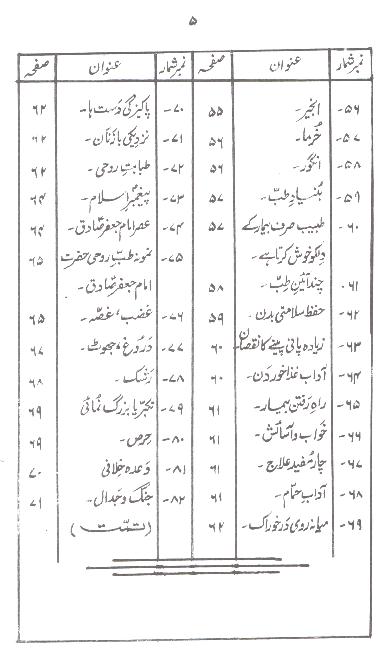 ۵
نمبر شمار عنوان صفحہ
۵۶- انجیر- ۵۵
۵۷- خُرما- ۵۶
۵۸- انگور- ۵۶
۵۹- بُنیادِ طبّ- ۵۷
۶۰- طبیب صرف بیمار کے ۵۷
دلکو خوش کرتا ہے-
۶۱- چند آئینِ طبّ- ۵۸
۶۲- حفظ سلامتی بدن- ۵۹
۶۳- زیادہ پانی پینے کا نقصان ۶۰
۶۴- آداب غذا خوردن- ۶۰
۶۵- راہ رفتن بیمار- ۶۱
۶۶- خواب و آسائش- ۶۱
۶۷- چار مُفید علاج- ۶۱
۶۸- آدابِ حمّام- ۶۱
۶۹- میانہ روی در خوراک- ۶۲
نمبر شمار عنوان صفحہ
۷۰- پاکیزگی دَست ہا- ۶۲
۷۱- نزدیکی بازنان- ۶۲
۷۲- طبابتِ روحی- ۶۲
۷۳- پیغمبرِ اسلام- ۶۴
۷۴- عصرِ امام جعفر صادق- ۶۴
۷۵- نمونہ طبِّ روحی حضرت ۶۵
امام جعفر صادق-
۷۶- غضب، غصّہ- ۶۵
۷۷- دَردُرغ، جھوٹ- ۶۷
۷۸- رَشک- ۶۸
۷۹- تکبّر یا بزرگ نمائی ۶۹
۸۰- حرص- ۶۹
۸۱- وعدہ خلافی ۷۰
۸۲- جنگ و جدال- ۷۱
(تمّت)